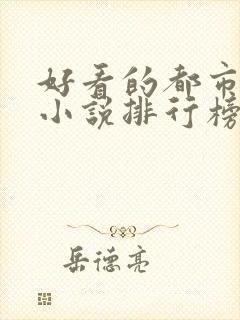 好看的都市
小说排行榜
岳德亮